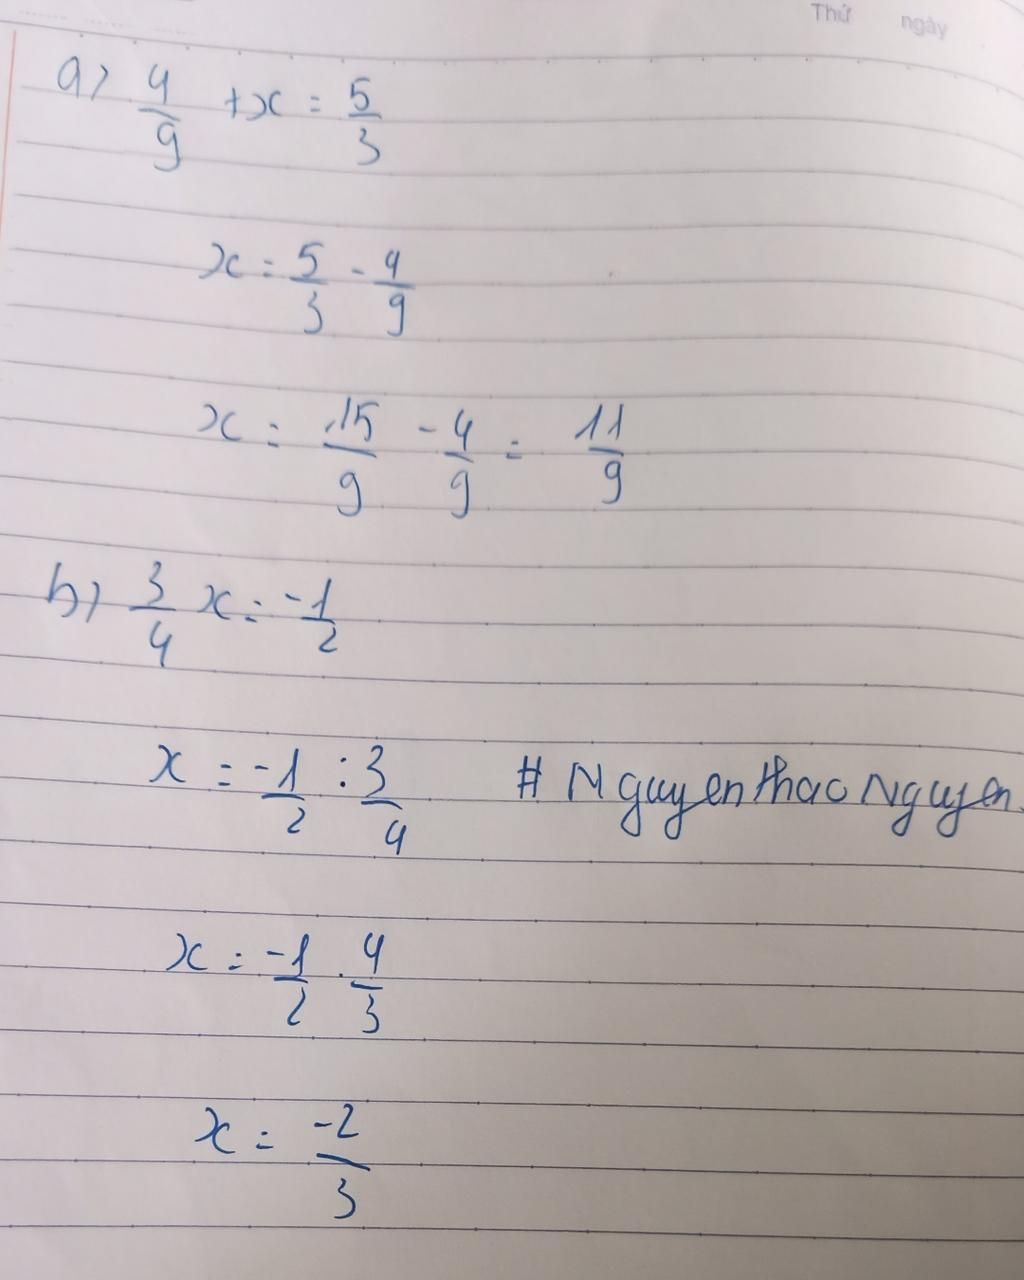 Thứ ngày
a) 4/9 + x = 5/3
x = 5/3 - 4/9
x = 15/9 - 4/9 = 11/9
b) 3/4 x = -1/2
x = -1/2 : 3/4
# NguyenthacNguyen.
x = -1/2 . 4/3
x = -2/3